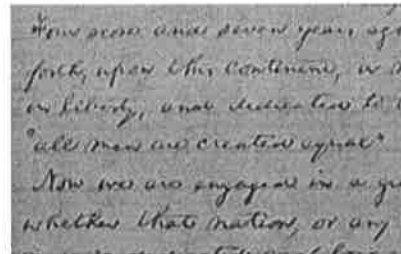 Four score and seven years ago
forth, upon this continent, a n
in liberty, and dedicated to t
"all men are created equal"
Now we are engaged in a gr
whether that nation, or any